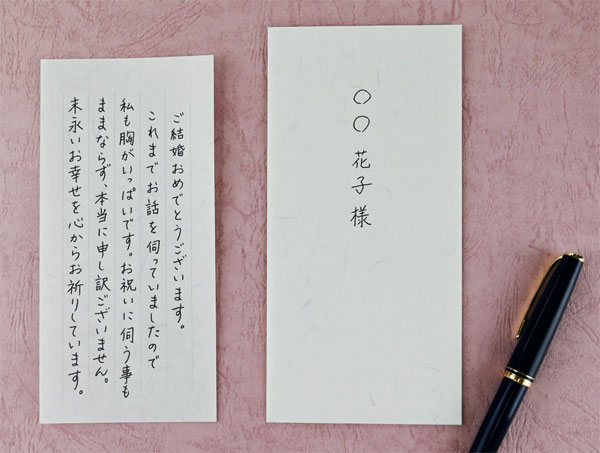 ご結婚おめでとうございます。
これまでお話を伺っていましたので
私も胸がいっぱいです。お祝いに伺う事も
ままならず、本当に申し訳ございません。
末永いお幸せを心からお祈りしています。
〇〇花子様